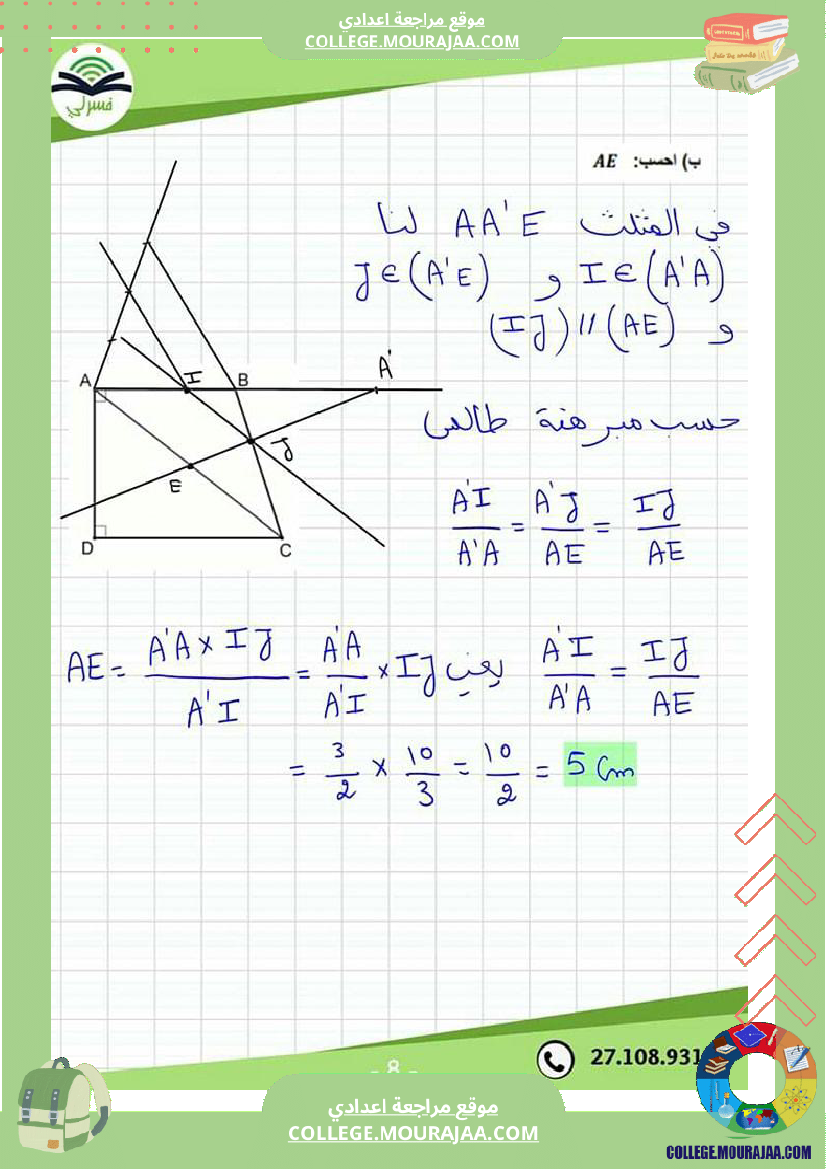 موقع مراجعة اعدادي
COLLEGE.MOURAJAA.COM
فسرلي
ب) احسب: AE
في المثلث AA'E لنا
I ∈ (A'A) و J ∈ (A'E)
و (IJ) // (AE)
حسب مبرهنة طالس
A'I/A'A = A'J/AE = IJ/AE
A'I/A'A = IJ/AE يعني AE = A'A × IJ/A'I = A'A/A'I × IJ
= 3/2 × 10/3 = 10/2 = 5 cm
A I B A'
J
E
D C
27.108.931
- 8 -
موقع مراجعة اعدادي
COLLEGE.MOURAJAA.COM
COLLEGE.MOURAJAA.COM